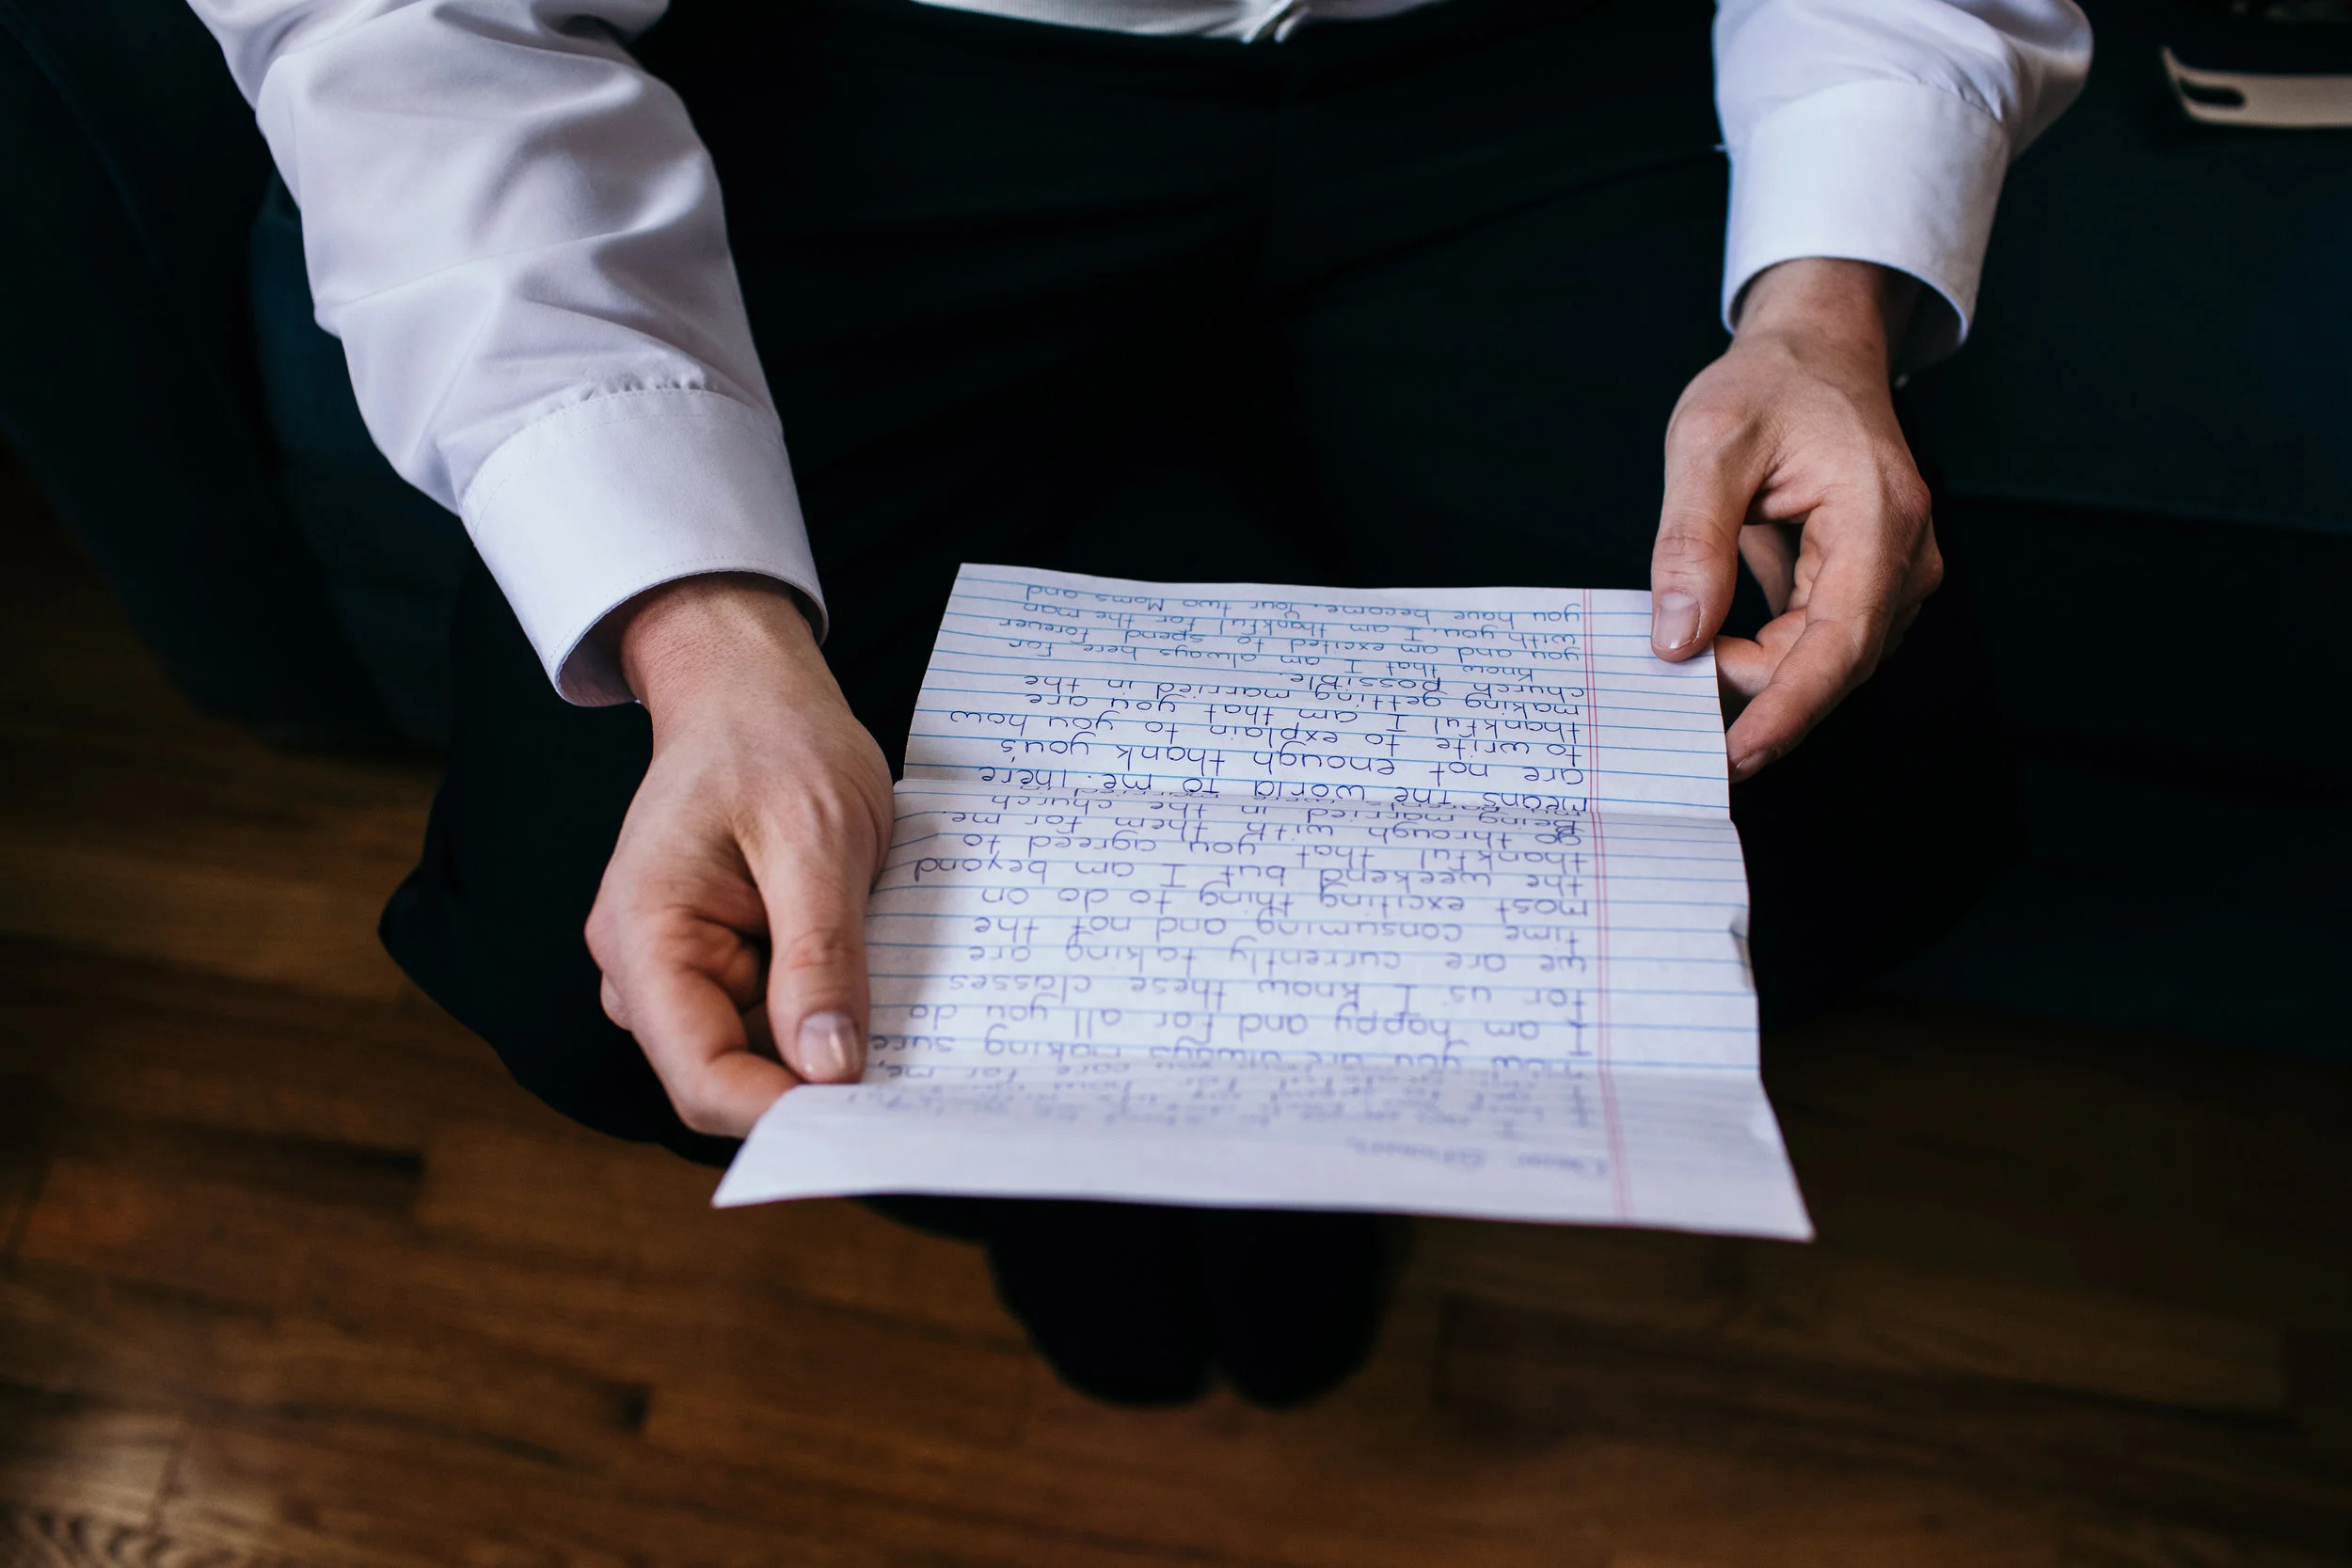 how you are always making sure
I am happy and for all you do
for us I know these classes
we are currently taking are
time consuming and not the
most exciting thing to do on
the weekend but I am beyond
thankful that you agreed to
go through with them for me.
Being married in the church
means the world to me. There
are not enough thank you's
to write to explain to you how
thankful I am that you are
making getting married in the
church possible.
Know that I am always here for
you and am excited to spend forever
with you. I am thankful for the man
you have become. Your two Moms and